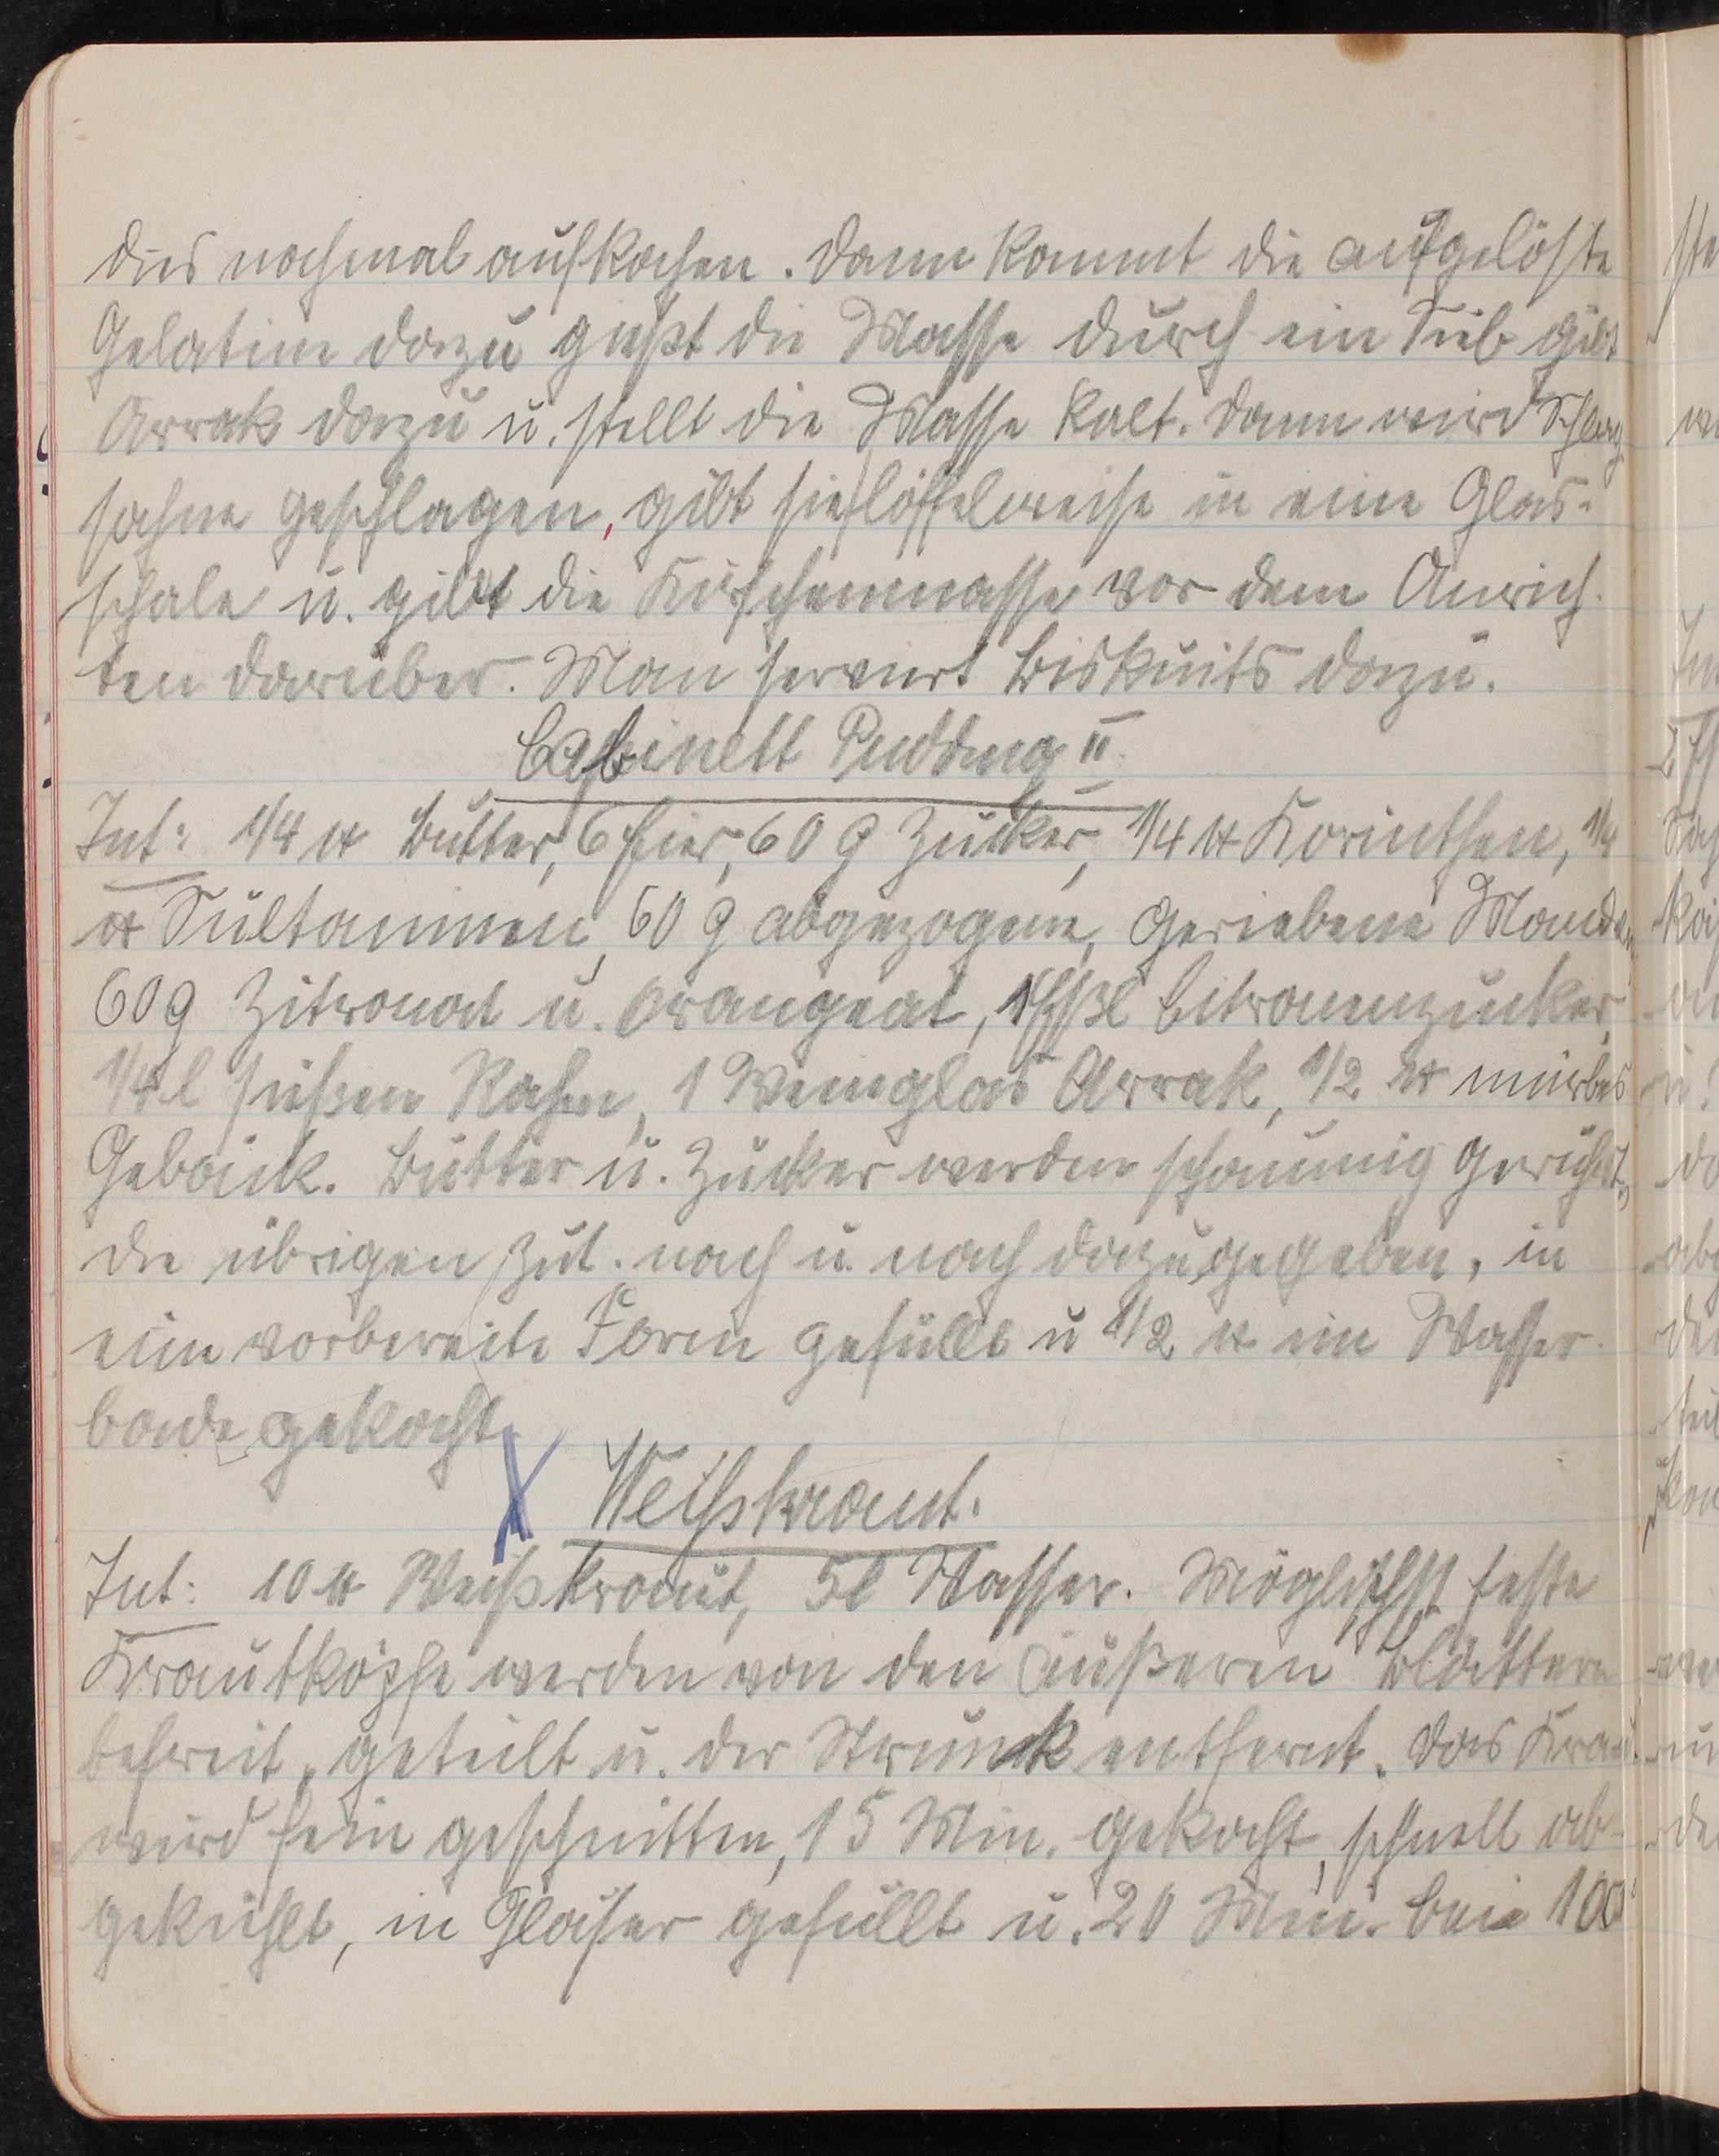 dies nochmal aufkochen. Dann kommt die aufgelöste
Gelatine dazu gießt die Masse durch ein Sieb gibt
Arrak dazu u. stellt die Masse kalt. Dann wird Schlag-
sahne geschlagen, gibt sie löffelweise in eine Glas-
schale u. gibt die Kirschenmasse vor dem Anrich-
ten darüber. Man serviert Biskuits dazu.
Cabinett Pudding II.
Zut: 1/4 ℔ Butter, 6 Eier, 60 g Zucker, 1/4 ℔ Korinthen, 1/4
℔ Sultaninen, 60 g abgezogene, geriebene Mandeln,
60 g Zitronat u. Orangeat, 1 Eßl Citronenzucker,
1/4 l süßen Rahm, 1 Weinglas Arrak, 1/2 ℔ mürbes
Gebäck. Butter u. Zucker werden schaumig gerührt,
die übrigen Zut. nach u. nach dazugegeben, in
eine vorbereite Form gefüllt u 1/2 im Wasser-
bade gekocht.
X Weißkraut.
Zut: 10 ℔ Weißkraut, 5 l Wasser. Möglichst feste
Krautköpfe werden von den äußeren Blättern
befreit, geteilt u. der Strunk entfernt. Das Kraut
wird fein geschnitten, 15 Min. gekocht, schnell ab-
gekühlt, in Gläser gefüllt u. 20 Min. bei 100°